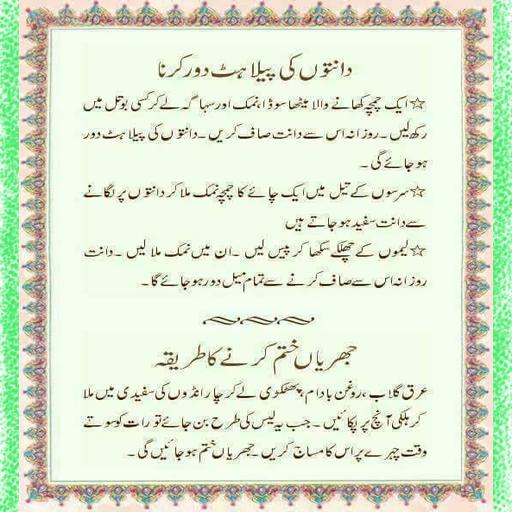 دانتوں کی پیلاہٹ دور کرنا
☆ایک چمچہ کھانے والا میٹھا سوڈا، نمک اور سہاگہ لے کر کسی بوتل میں
رکھ لیں۔ روزانہ اس سے دانت صاف کریں۔ دانتوں کی پیلاہٹ دور
ہو جائے گی۔
☆سرسوں کے تیل میں ایک چائے کا چمچہ نمک ملا کر دانتوں پر لگانے
سے دانت سفید ہو جاتے ہیں
☆لیموں کے چھلکے سکھا کر پیس لیں۔ ان میں نمک ملا لیں۔ دانت
روزانہ اس سے صاف کرنے سے تمام میل دور ہو جائے گا۔
جھریاں ختم کرنے کا طریقہ
عرق گلاب، روغن بادام، پھٹکڑی لے کر چار انڈوں کی سفیدی میں ملا
کر ہلکی آنچ پر پکائیں۔ جب یہ لیس کی طرح بن جائے تو رات کو سوتے
وقت چہرے پر اس کا مساج کریں۔ جھریاں ختم ہو جائیں گی۔